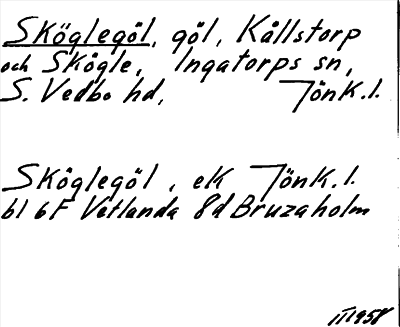 Sköglegöl, göl, Kållstorp
och Skögle, Ingatorps sn,
S. Vedbo hd, Jönk. l.
Sköglegöl, ek Jönk. l.
bl 6F Vetlanda 8d Bruzaholm